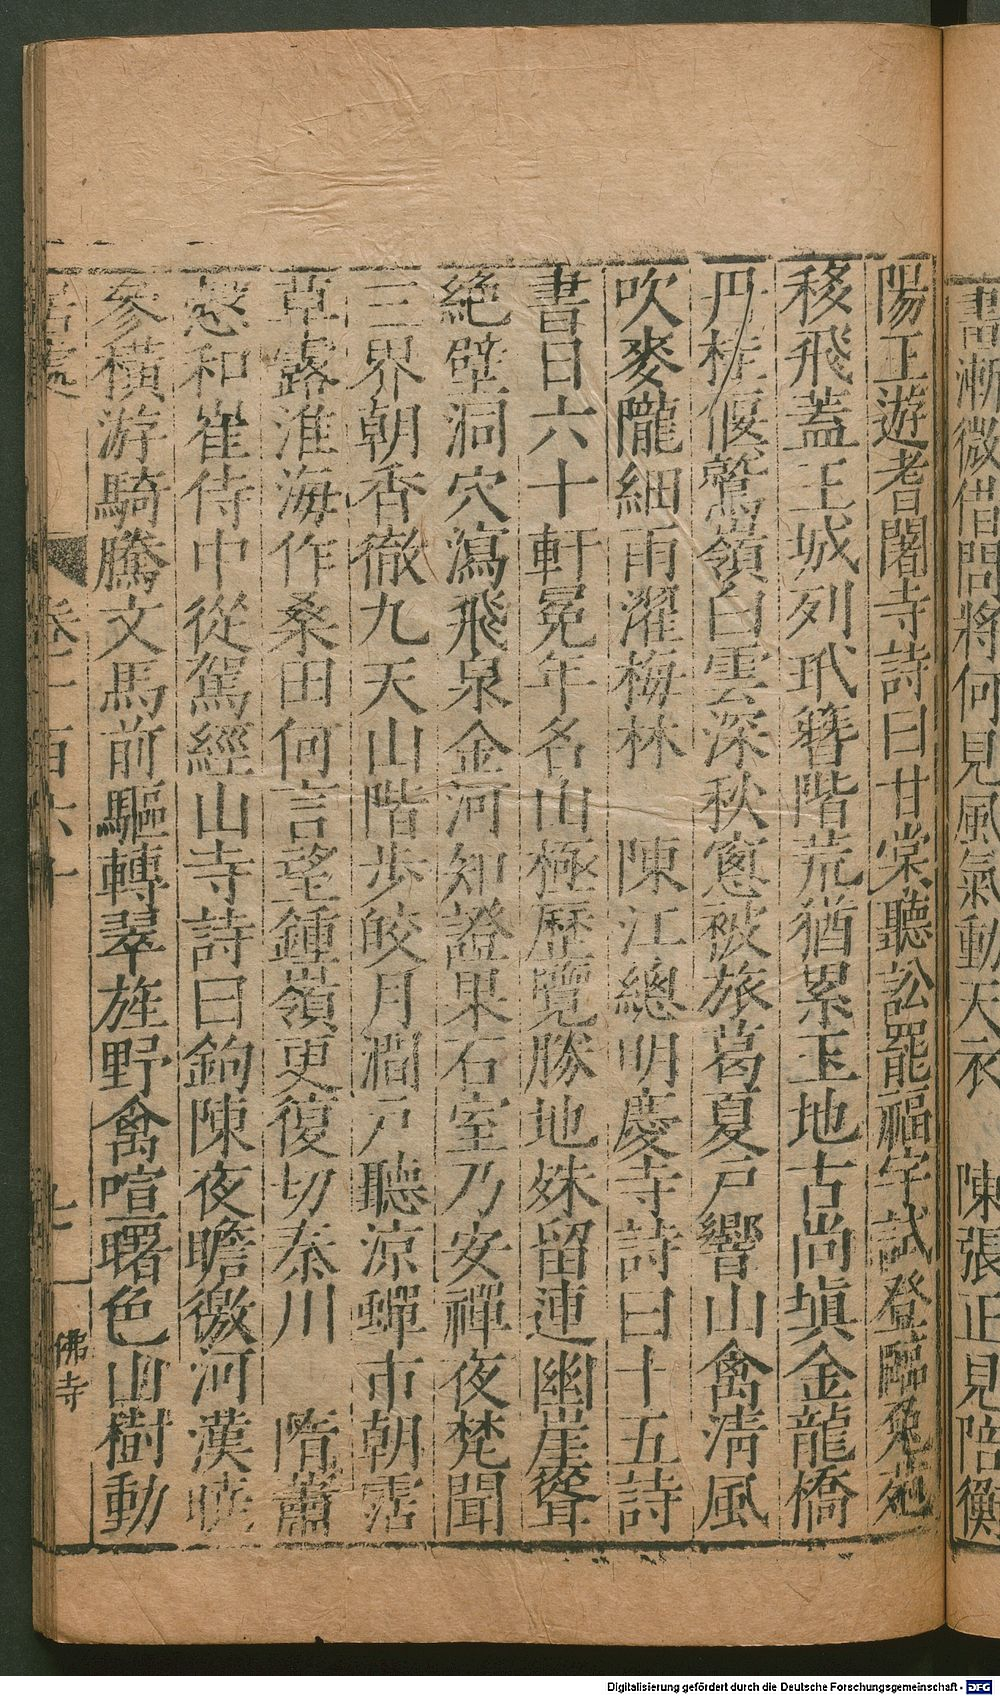 書漸微借問將何見風氣動天衣　陳張正見陪衡
陽王遊耆闍寺詩曰甘棠聽訟罷福宇試登臨兔苑
移飛蓋王城列玳簪階荒猶累玉地古尚塡金龍橋
丹桂偃鷲嶺白雲深秋窻被旅葛夏戸響山禽清風
吹麥隴細雨濯梅林　陳江總明慶寺詩曰十五詩
書日六十軒冕年名山極歷覽勝地姝留連幽崖聳
絶壁洞穴瀉飛泉金河知證果石室乃安禪夜梵聞
三界朝香徹九天山階歩皎月澗戸聽涼蟬市朝霑
草露淮海作桑田何言望鍾嶺更復切秦川　隋蕭
慤和崔侍中從駕經山寺詩曰鉤陳夜瞻徼河漢曉
參橫游騎騰文馬前驅轉翠旌野禽喧曙色山樹動
居處　卷一百六十　七　佛寺
Digitalisierung gefördert durch die Deutsche Forschungsgemeinschaft - DFG